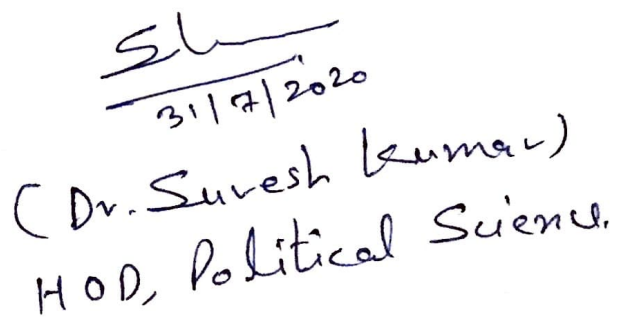 31/7/2020
(Dr. Suresh Kumar)
HOD, Political Science.